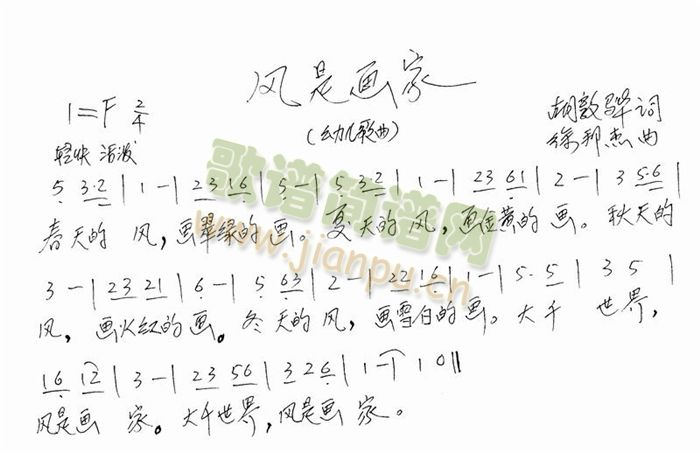 风是画家
1=F 2/4
(幼儿歌曲)
胡敦骅词
轻快 活泼
徐邦杰曲
5 3·2 | 1 - | 23 16 | 5 - | 5 32 | 1 - | 23 61 | 2 - | 3 5·6 |
春天的 风，画翠绿的画。夏天的风，画金黄的画。秋天的
3 - | 23 21 | 6 - | 5 63 | 2 - | 22 16 | 1 - | 5· 5 | 3 5 |
风，画火红的画。冬天的风，画雪白的画。大千 世界，
16 12 | 3 - | 23 56 | 32 6 | 1 - | 1 0 ||
风是画 家。大千世界，风是画 家。
歌谱简谱网
www.jianpu.cn